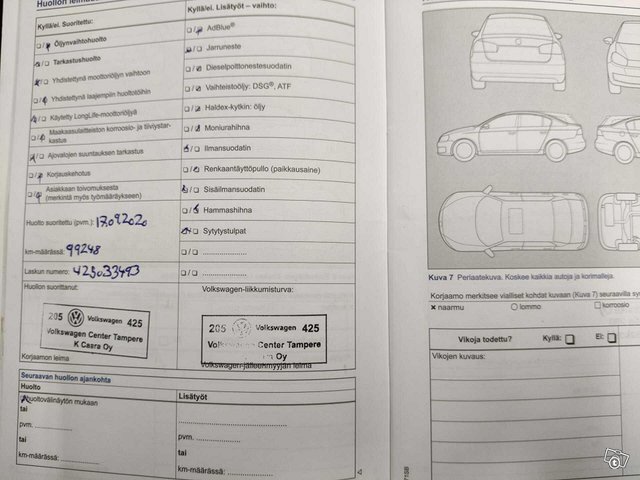 Huollon leimau
Kyllä/ei. Suoritettu:
Öljynvaihtohuolto
Tarkastushuolto
Yhdistettynä moottoriöljyn vaihtoon
Yhdistettynä laajempiin huoltotöihin
Käytetty LongLife-moottoriöljyä
Maakaasulaitteiston korroosio- ja tiiviystar-
kastus
Ajovalojen suuntauksen tarkastus
Korjauskehotus
Asiakkaan toivomuksesta
(merkintä myös työmääräykseen)
Huolto suoritettu (pvm.): 17.09.2020
km-määrässä: 99248
Laskun numero: 425033493
Huollon suorittanut:
205 Volkswagen 425
Volkswagen Center Tampere
K Caara Oy
Korjaamon leima
Kyllä/ei. Lisätyöt – vaihto:
AdBlue®
Jarruneste
Dieselpolttonestesuodatin
Vaihteistoöljy: DSG®, ATF
Haldex-kytkin: öljy
Moniurahihna
Ilmansuodatin
Renkaantäyttöpullo (paikkausaine)
Sisäilmansuodatin
Hammashihna
Sytytystulpat
Volkswagen-liikkumisturva:
205 Volkswagen 425
Center Tampere
Oy
Volkswagen-jälleenmyyjän leima
Seuraavan huollon ajankohta
Huolto
Huoltovälinäytön mukaan
tai
pvm.
tai
km-määrässä:
Lisätyöt
pvm.
tai
km-määrässä:
Kuva 7 Periaatekuva. Koskee kaikkia autoja ja korimalleja.
Korjaamo merkitsee vialliset kohdat kuvaan (Kuva 7) seuraavilla sy
× naarmu ○ lommo □ korroosio
Vikoja todettu? Kyllä: Ei:
Vikojen kuvaus: